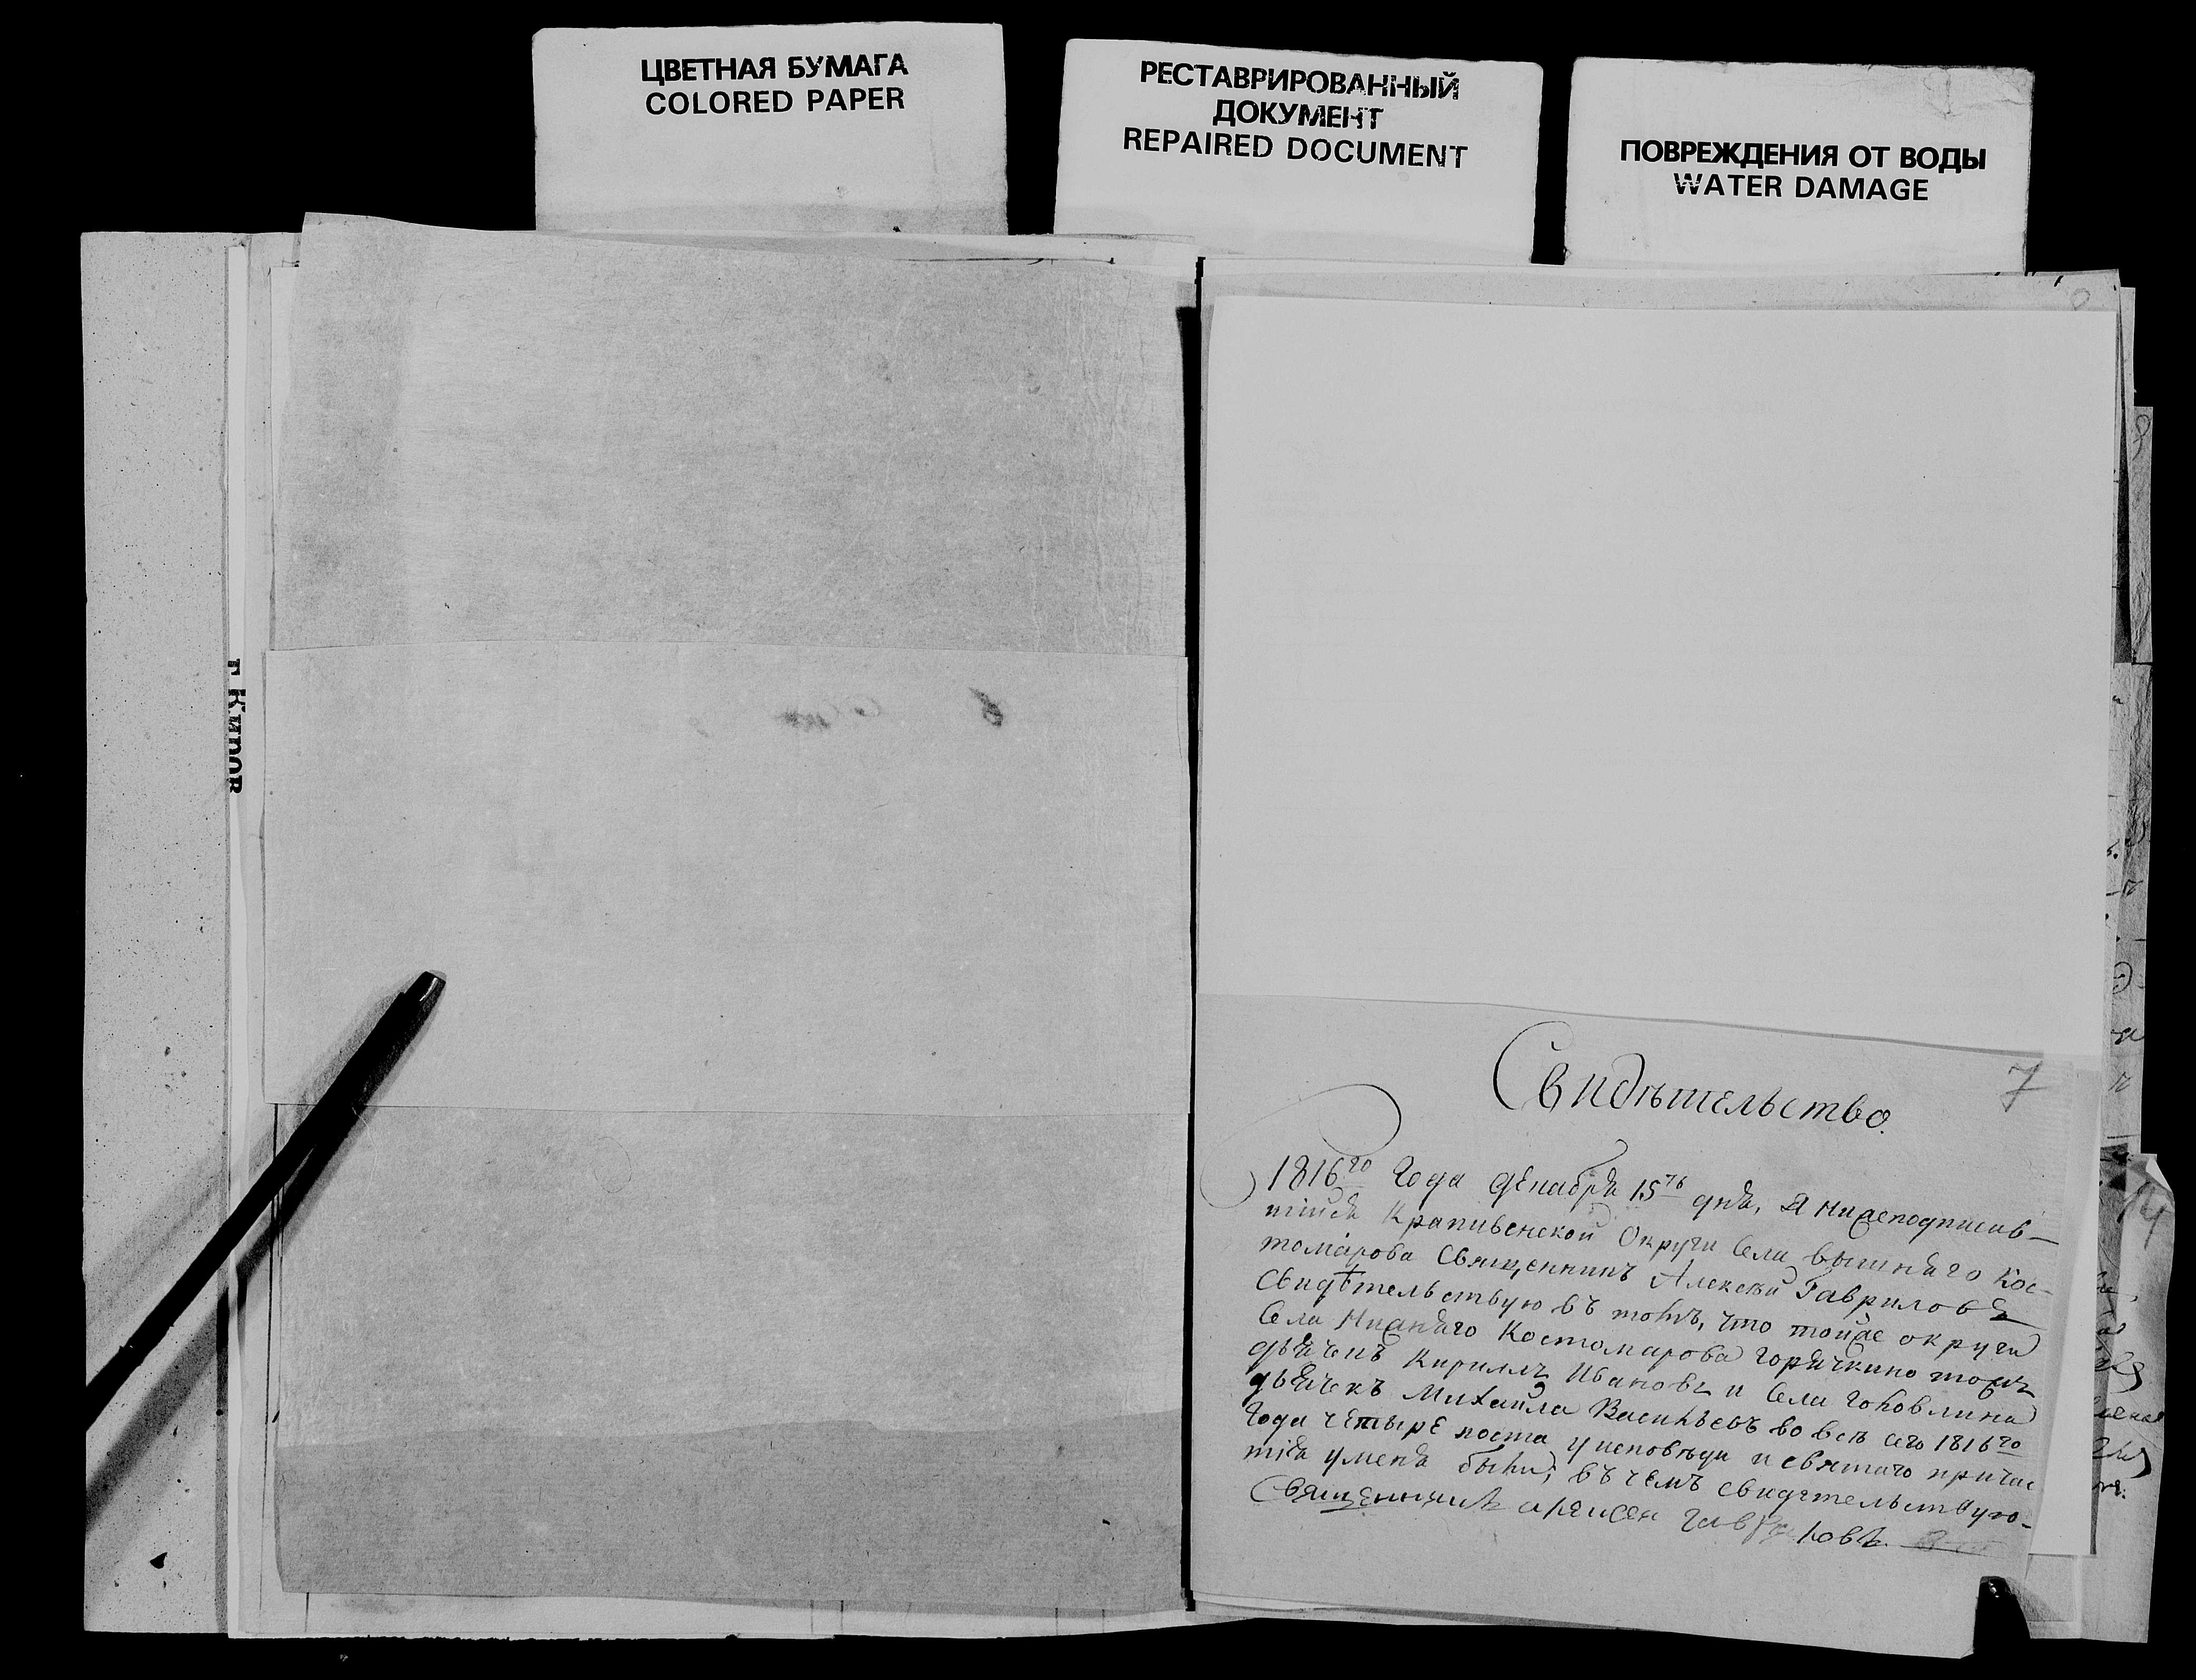 ЦВЕТНАЯ БУМАГА
COLORED PAPER
РЕСТАВРИРОВАННЫЙ
ДОКУМЕНТ
REPAIRED DOCUMENT
ПОВРЕЖДЕНИЯ ОТ ВОДЫ
WATER DAMAGE
г Киров
7
Свидѣтельство.
1816го Года декабря 15го дня, Я нижеподписав-
шийся Крапивенской Округи Села вышняго Кос-
томарова Священникъ Алексѣй Гавриловъ
Свидѣтельствую въ томъ, что тойже округи
Села Нижняго Костомарова Горячкино тожъ
дьячекъ Кирилъ Ивановъ и Села Головлина
дьячекъ Михаила Васильевъ во всѣ сего 1816го
Года четыре поста у исповѣди и святаго причас
тія уменя были; въ чемъ свидѣтельствую-
Священникъ Алексей Гавриловъ